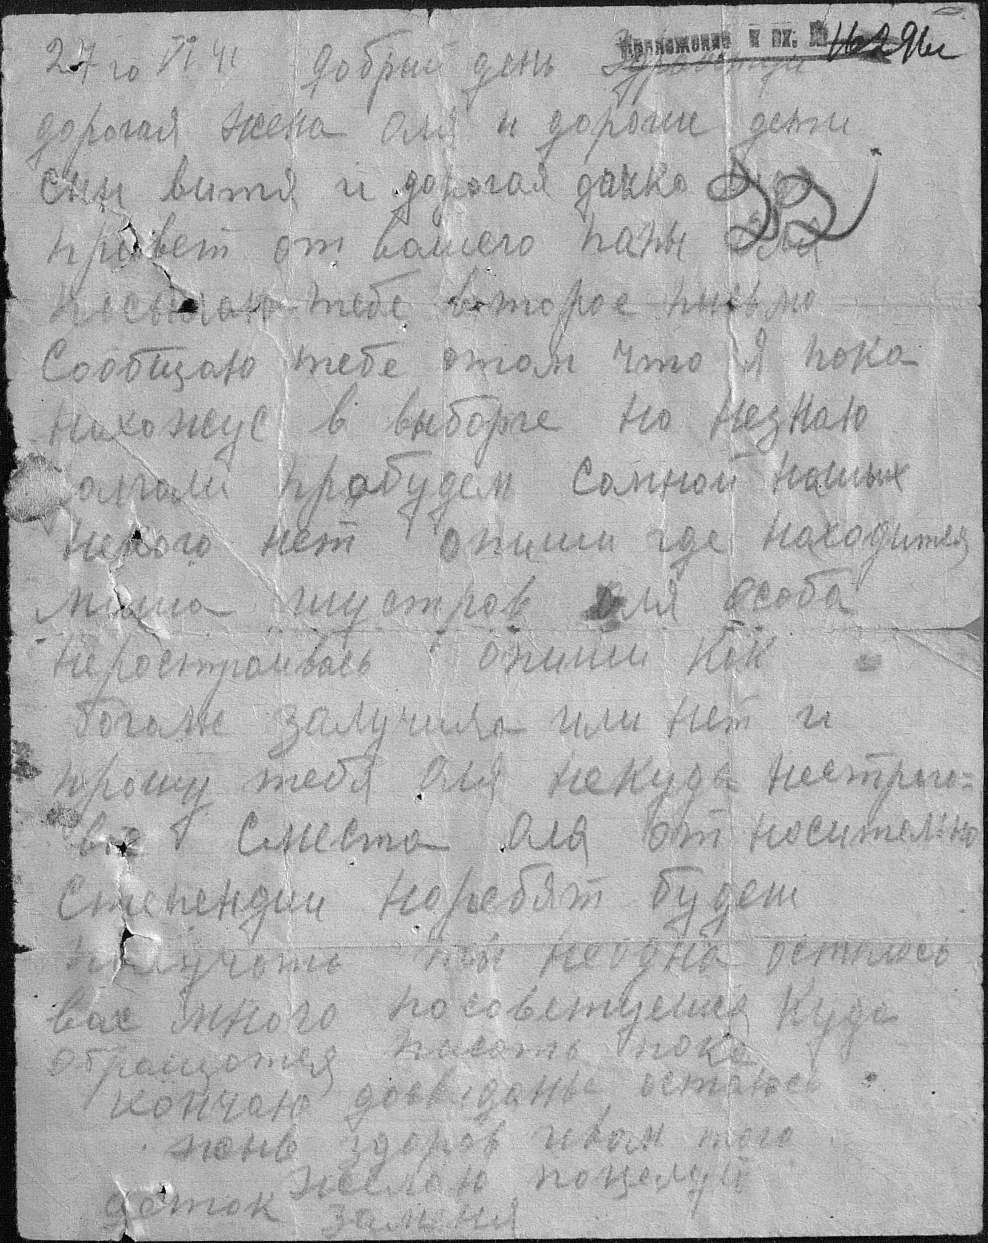 Приложение к вх. №
27 го VI 41 добрый день
дорогая жена Оля и дорогие дети
сын витя и дорогая дочка
привет от вашего папы Оля
посылаю тебе второе письмо
Сообщаю тебе отом что я пока
нахожус в выборге но незнаю
пробудем Сомной наших
некого нет опиши где находится
миша шустров Оля особа
нерастраивась опиши как
богаж залучила или нет и
прошу тебя Оля некуда нестрого=
вай Сместа Оля от носительно
Степендии наребят будеш
получать ты неодна осталась
вас много посоветуешся Куда
обращатся писать пока
кончаю досвиданье остаюсь
жыв здоров ивам того
желаю поцелуй
деток заменя